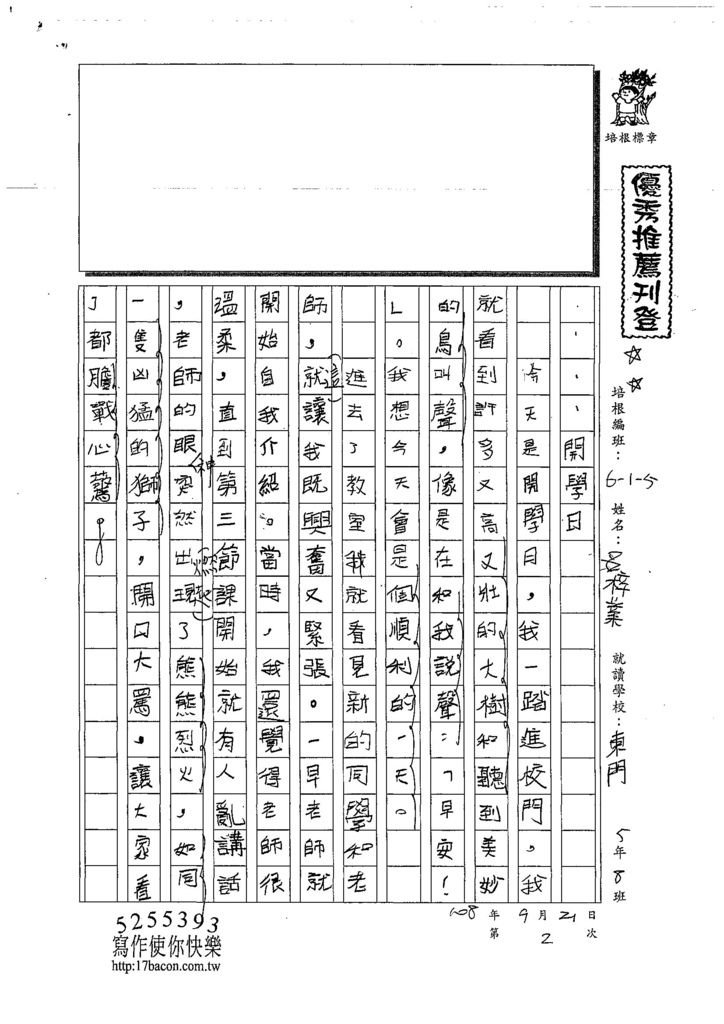 培根標章
優秀推薦刊登
培根編班：6-1-5 姓名： 就讀學校：東門 5年8班
開學日
今天是開學日，我一踏進校門，我
就看到許多又高又壯的大樹和聽到美妙
的鳥叫聲，像是在和我說聲：「早安！
」。我想今天會是個順利的一天。
進去了教室我就看見新的同學和老
師，這就讓我既興奮又緊張。一早老師就
開始自我介紹。當時，我還覺得老師很
溫柔，直到第三節課開始就有人亂講話
，老師的眼神突然出現燃起了熊熊烈火，如同
一隻凶猛的獅子，開口大罵，讓大家看
了都膽戰心驚。
108年9月21日
第2次
5255393
寫作使你快樂
http:17bacon.com.tw